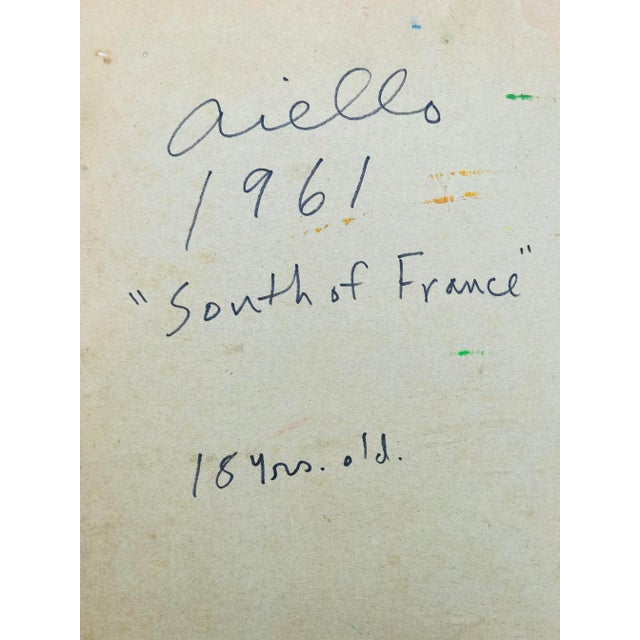 Aiello
1961
"South of France"
18 yrs. old.